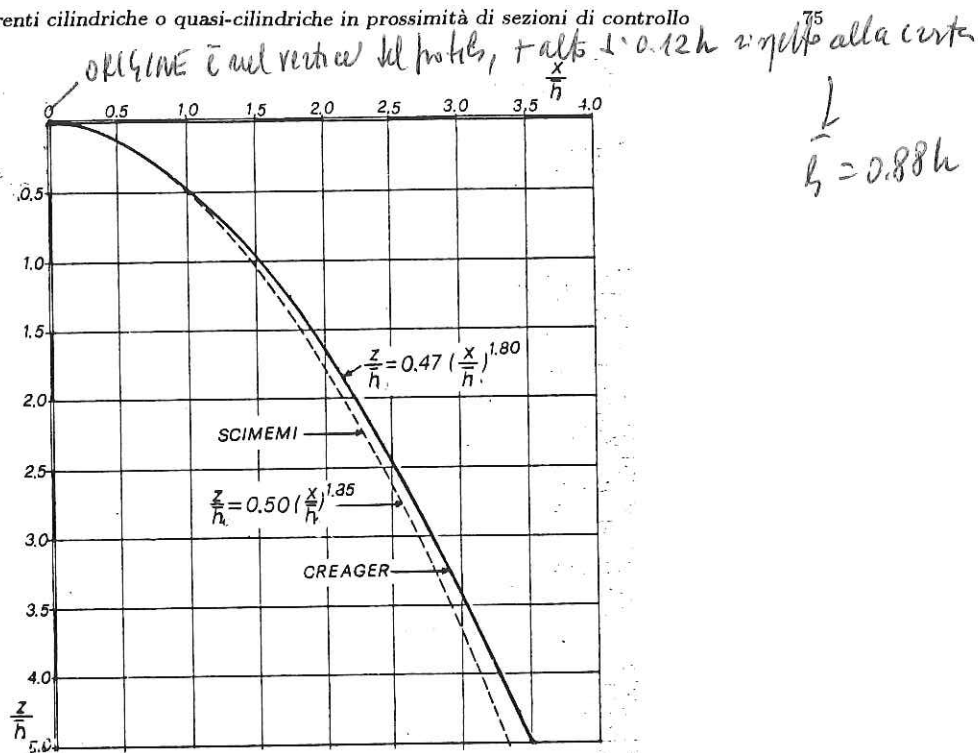 renti cilindriche o quasi-cilindriche in prossimità di sezioni di controllo 75
ORIGINE è nel vertice del profilo, + alto di 0.12h rispetto alla cresta
x/h̄
0 0.5 1.0 1.5 2.0 2.5 3.0 3.5 4.0
h̄ = 0.88h
0.5
1.0
1.5
z/h̄ = 0.47 (x/h̄)^1.80
2.0
SCIMEMI
2.5
z/h̄ = 0.50 (x/h̄)^1.85
3.0
CREAGER
3.5
4.0
z/h̄
5.0